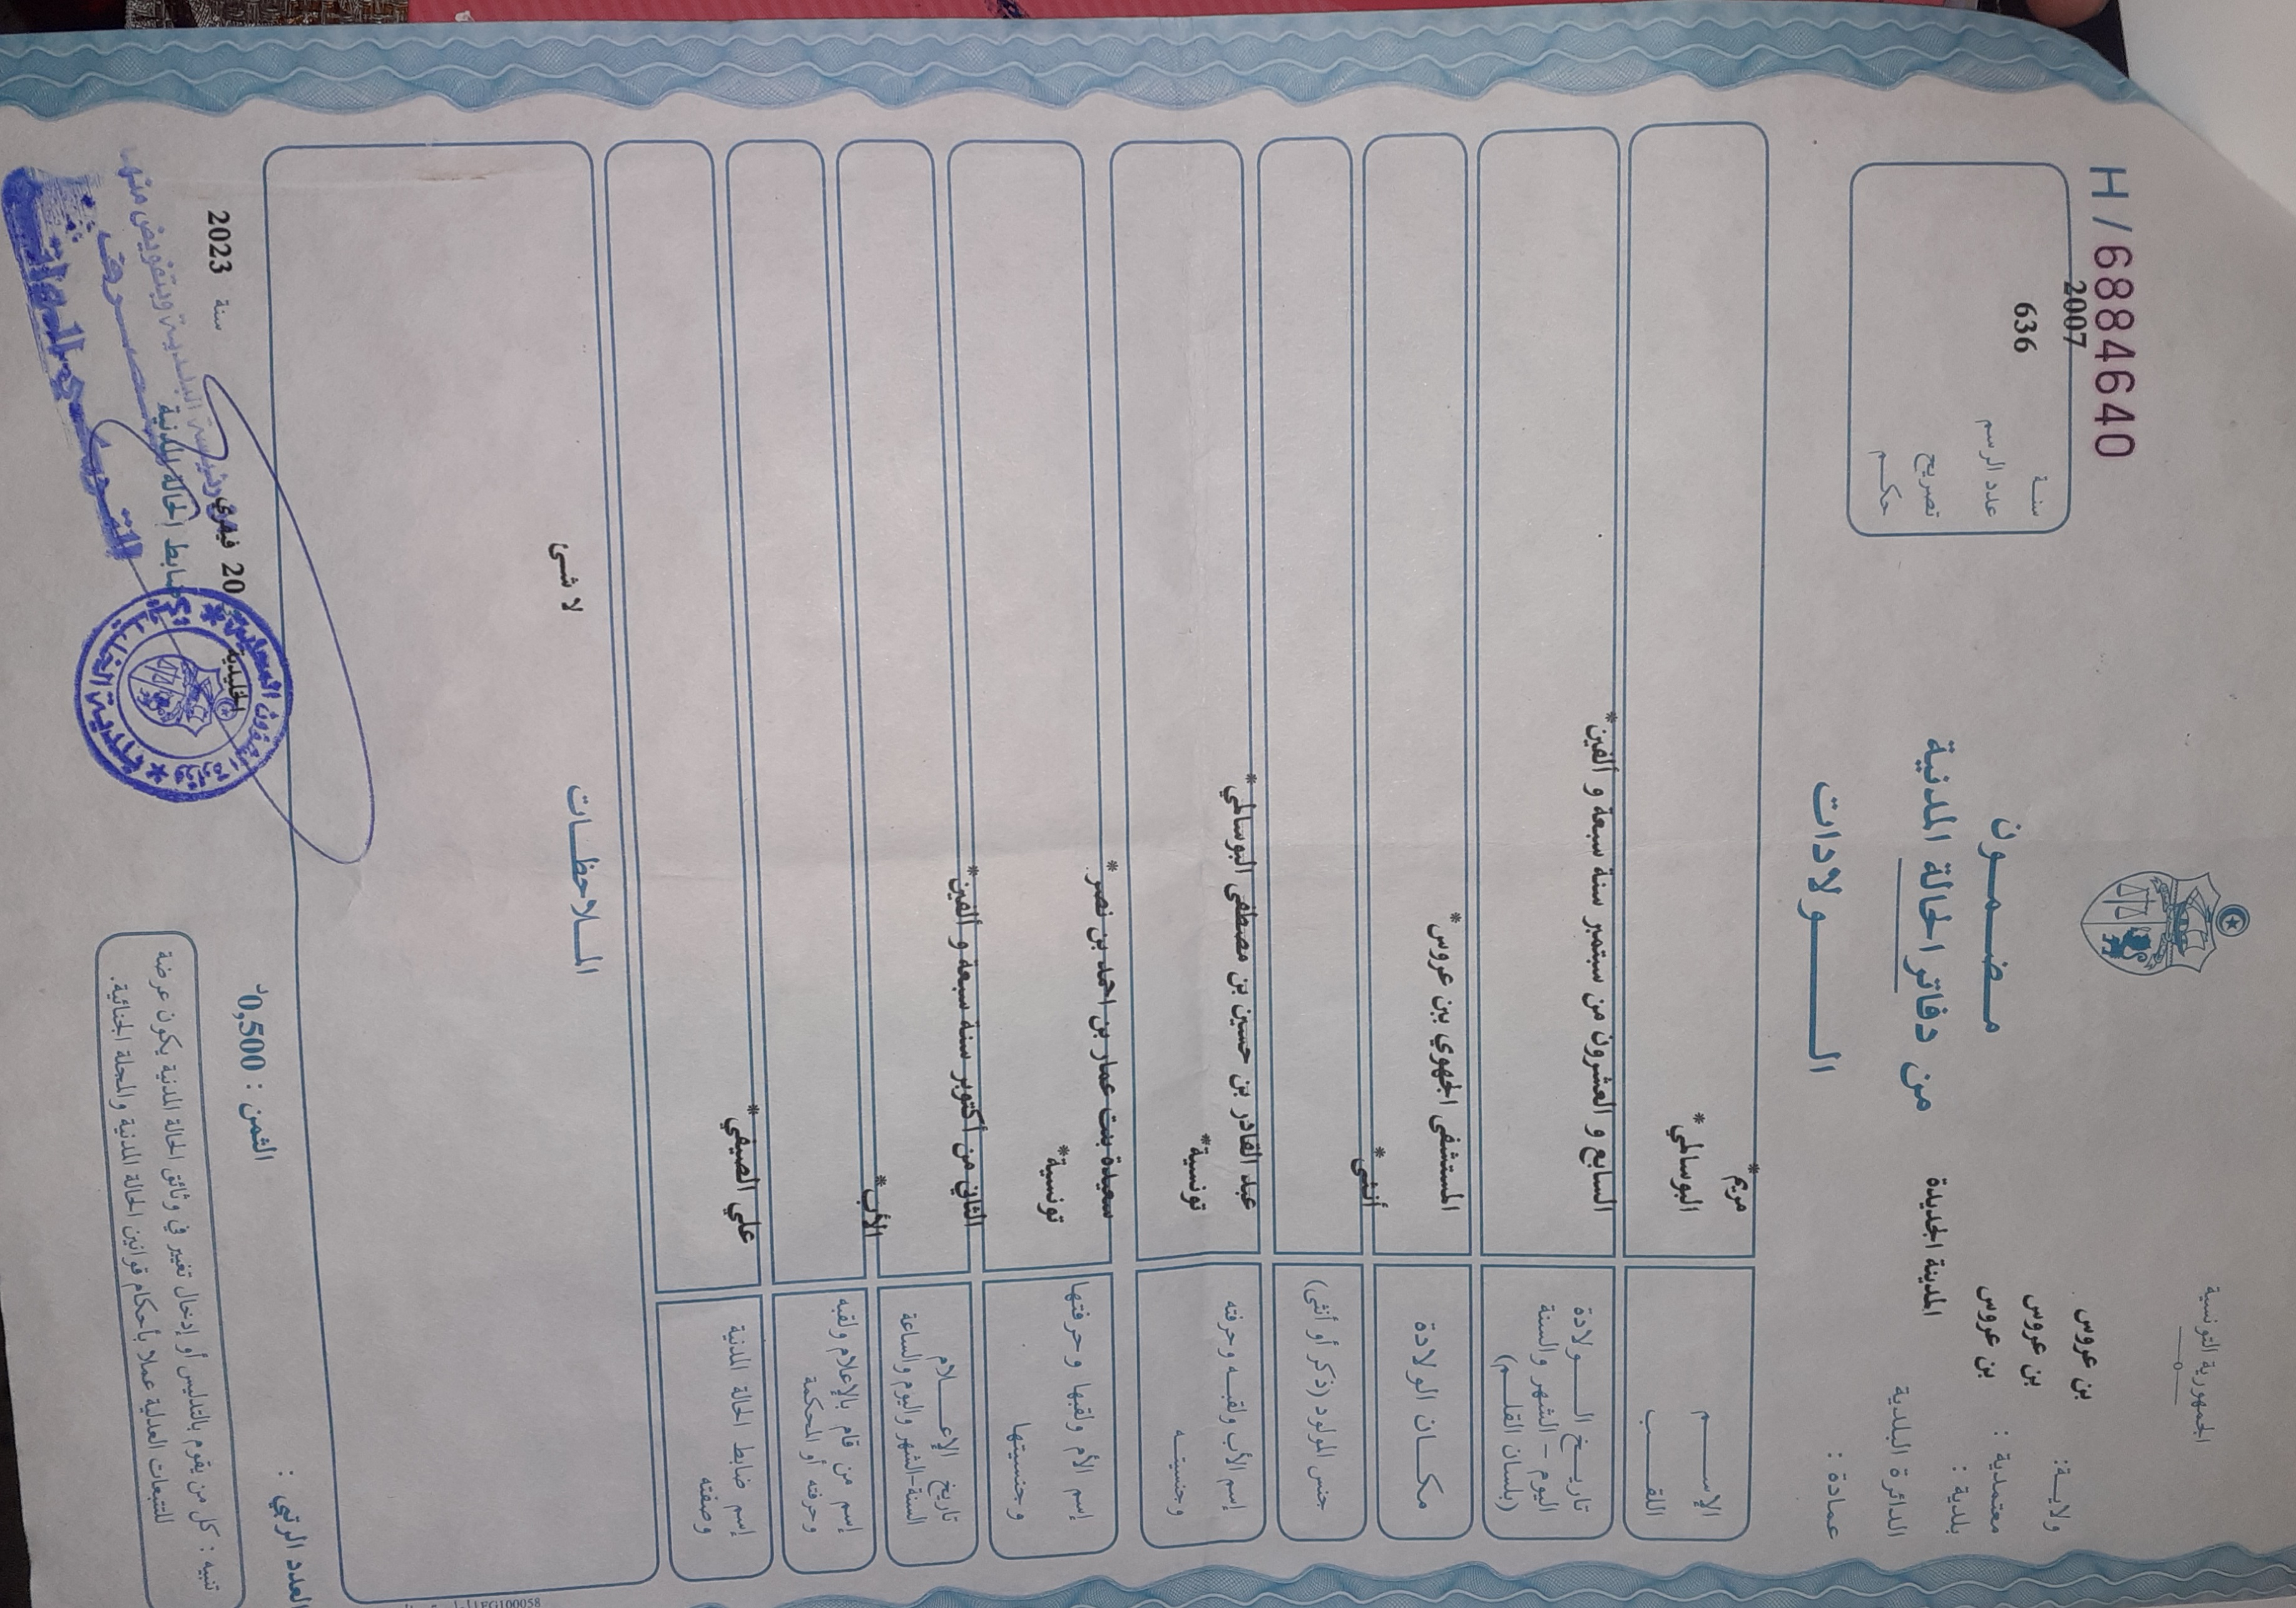 الجمهورية التونسية
ولايـــة: بن عروس
معتمدية : بن عروس
بلدية : بن عروس
الدائرة البلدية المدينة الجديدة
عمادة :
مـضـمـــون
من دفاتر الحالة المدنية
الـــــولادات
H / 6884640
سنـة 2007
عدد الرسم 636
تصريح
حكـــم
الإســـــم مريم*
اللقـــــب البوسالمي*
تاريـــخ الـــــولادة
اليوم – الشهر والسنة
(بلسان القلـــم)
السابع و العشرون من سبتمبر سنة سبعة و ألفين*
مكـــان الولادة
المستشفى الجهوي ببن عروس*
جنس المولود (ذكر أو أنثى)
أنثى*
إسم الأب ولقبـــه وحرفته
وجنسيتـــه
عبد القادر بن حسين بن مصطفى البوسالمي*
تونسية*
إسم الأم ولقبها وحرفتها
وجنسيتها
سعيدة بنت عمار بن احمد بن نصر*
تونسية*
تاريخ الإعـــلام
السنة-الشهر واليوم والساعة
الثاني من أكتوبر سنة سبعة و ألفين*
إسم من قام بالإعلام ولقبه
وحرفته أو المحكمة
الأب*
إسم ضابط الحالة المدنية
وصفته
علي الصيفي*
المـــلاحظـــات
لا شئ
الخليدية 20 فيفري سنة 2023
ضابط الحالة المدنية
العدد الرتبي :
الثمن : 0,500د
تنبيه : كل من يقوم بالتدليس أو إدخال تغيير في وثائق الحالة المدنية يكون عرضة
للتتبعات العدلية عملا بأحكام قوانين الحالة المدنية والمجلة الجنائية.
EG100058